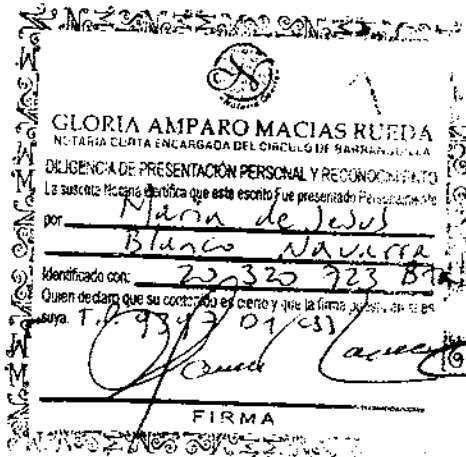 GLORIA AMPARO MACIAS RUEDA
NOTARIA CUARTA ENCARGADA DEL CIRCULO DE BARRANQUILLA
DILIGENCIA DE PRESENTACIÓN PERSONAL Y RECONOCIMIENTO
La suscrita Notaria certifica que este escrito fue presentado Personalmente
por Maria de Jesus
Blanco Navarra
Identificado con: 20 320 723 BTA
Quien declaro que su contenido es cierto y que la firma es
suya. T.P. 9347
FIRMA